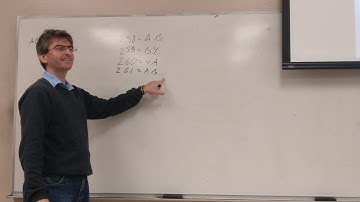 258 = A B
259 = B Y
260 = Y A
261 = A B